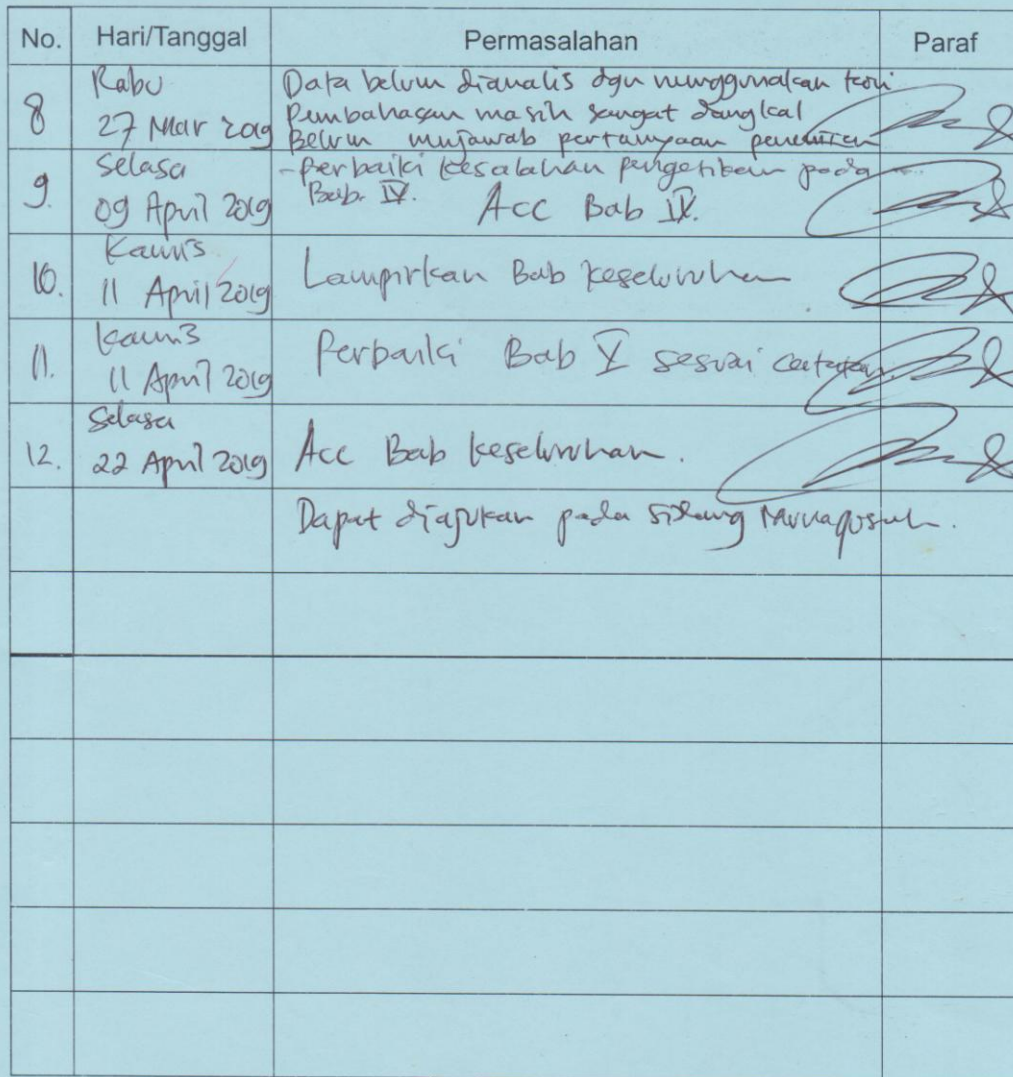 No. Hari/Tanggal Permasalahan Paraf
8 Rabu
27 Mar 2019
Data belum dianalis dgn menggunakan teori
Pembahasan masih sangat dangkal
Belum menjawab pertanyaan penelitian
9. Selasa
09 April 2019
- perbaiki kesalahan pengetikan pada
Bab. IV. Acc Bab IV.
10. Kamis
11 April 2019
Lampirkan Bab keseluruhan
11. Kamis
11 April 2019
Perbaiki Bab V sesuai catatan.
12. Selasa
22 April 2019
Acc Bab keseluruhan.
Dapat diajukan pada sidang Munaqosah.